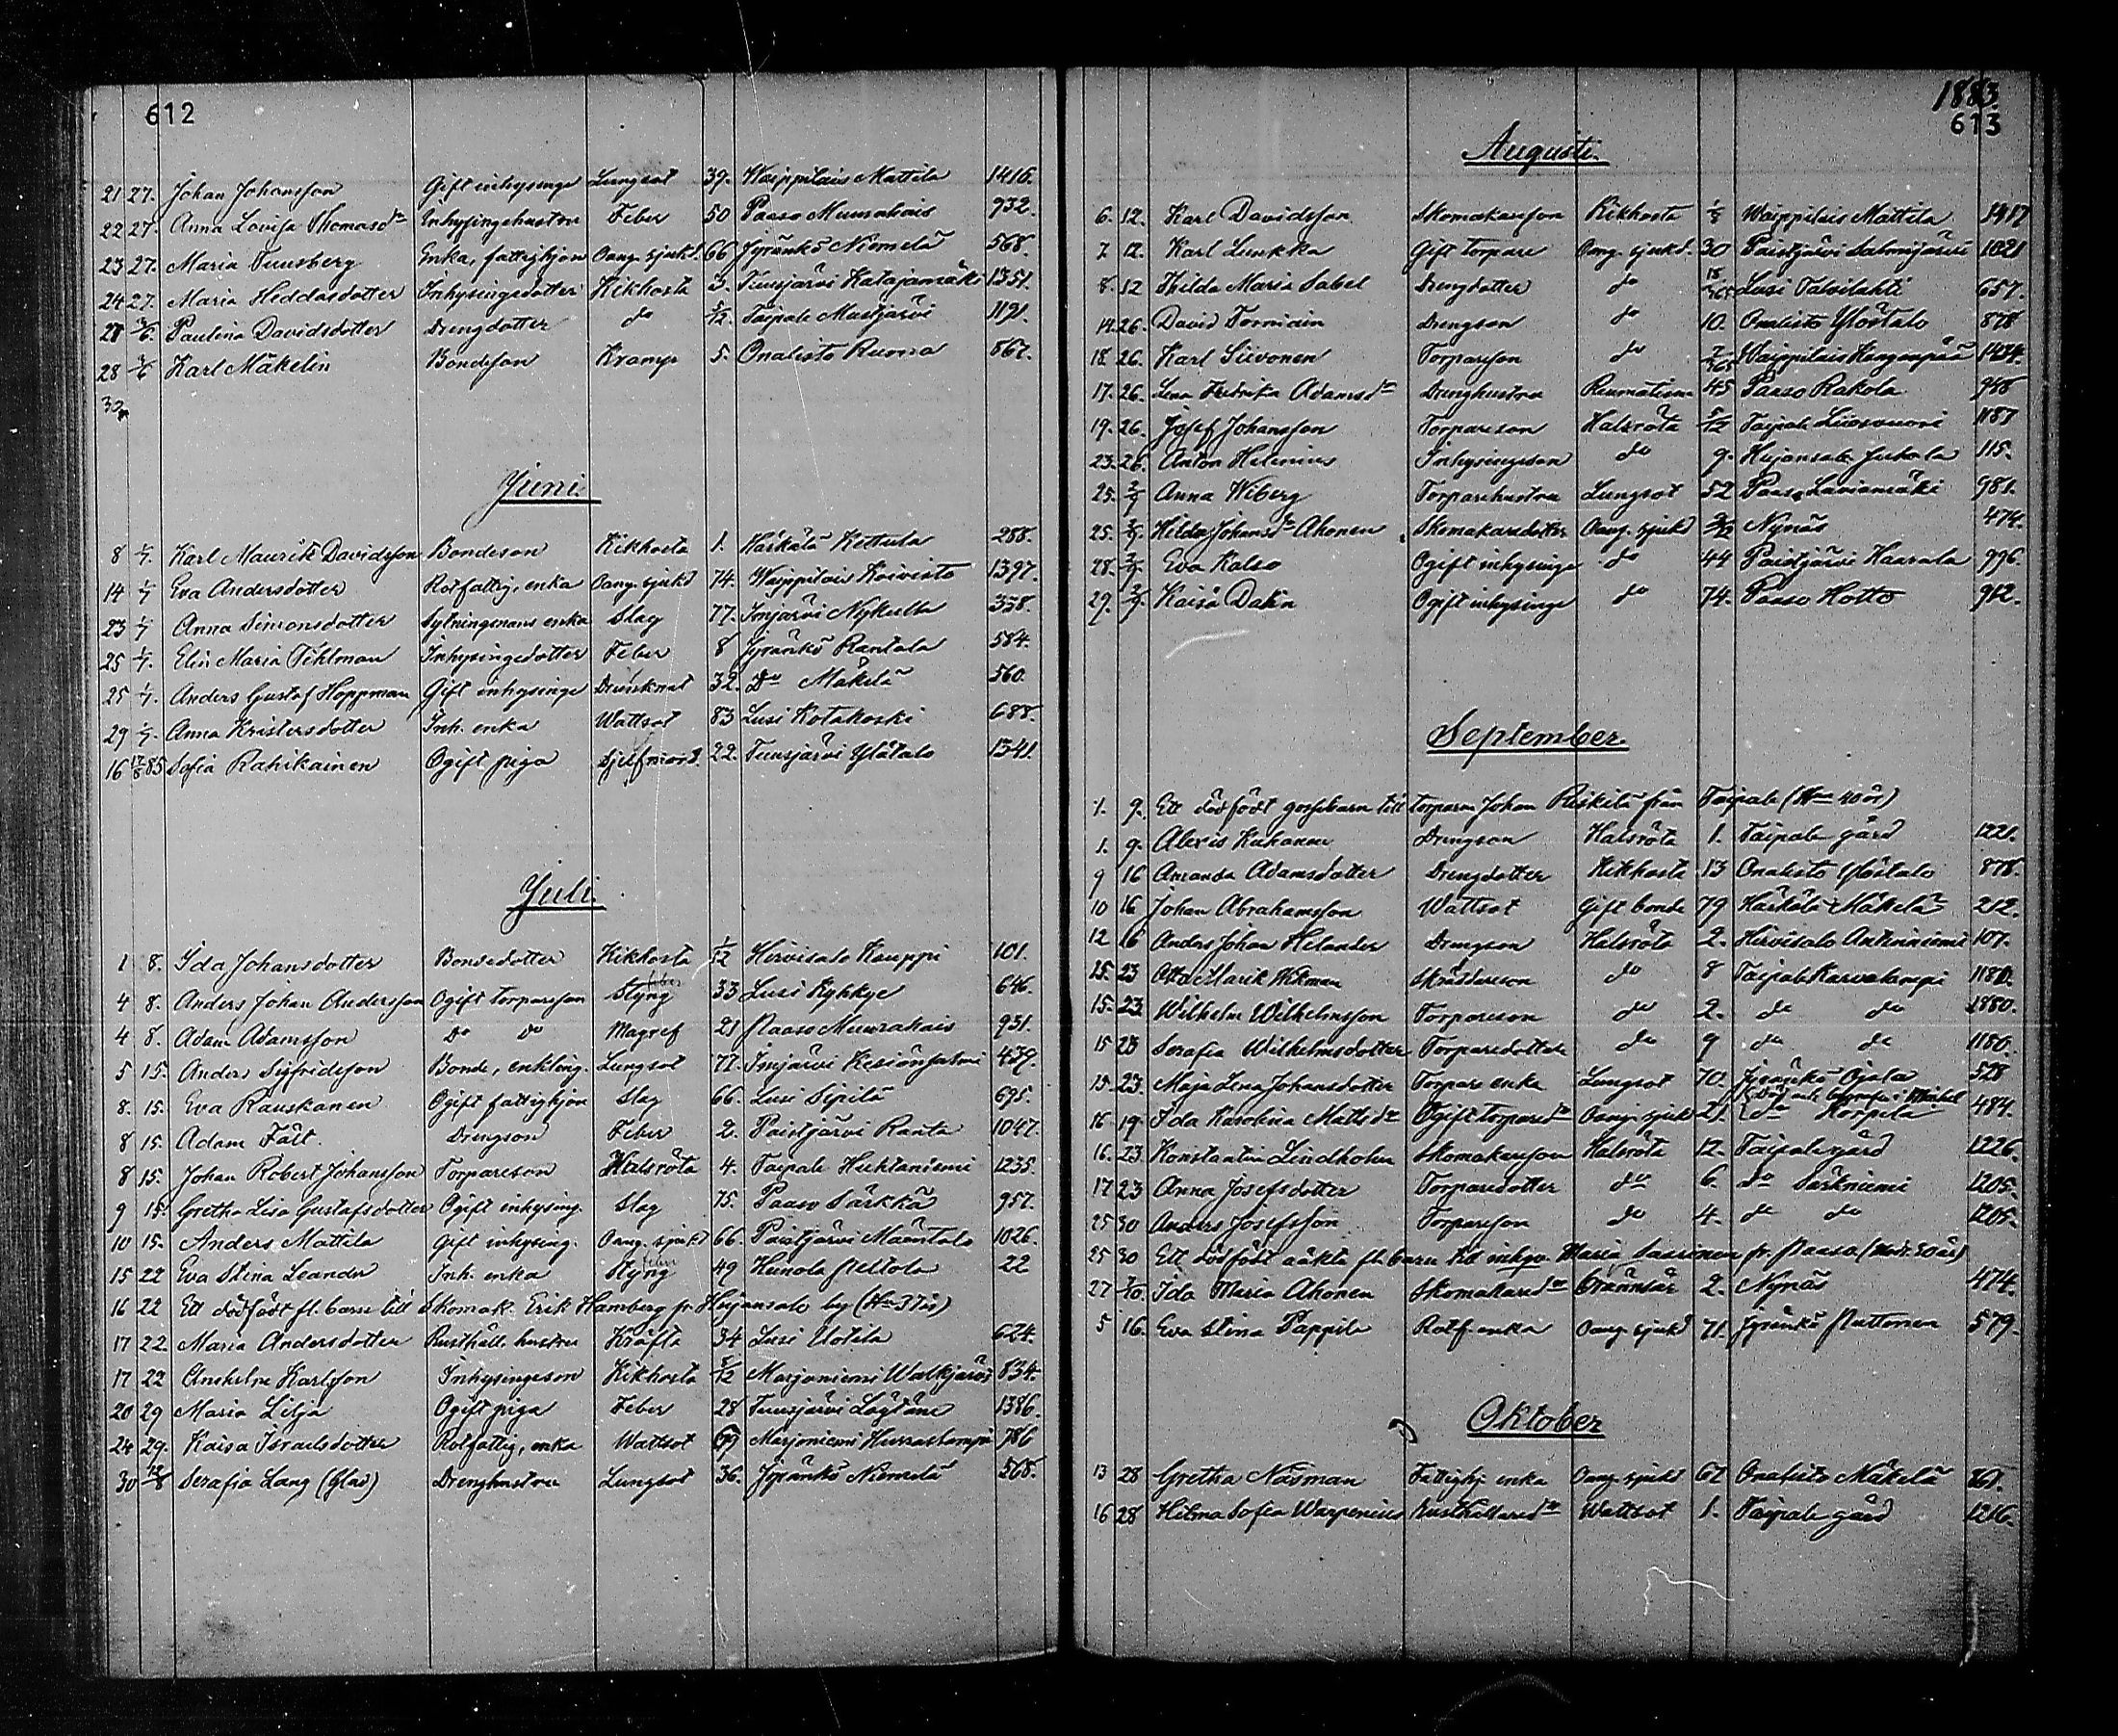 612
21 27. Johan Johansson Gift inhysinge Lungsot 39. Waippilais Mattila 1416.
22 27. Anna Lovisa Thomasdr Inhysingehustru Feber 50 Paaso 932.
23 27. Maria Tuusberg Enka, fattighjon Oang. sjukd. 66 Jyränkö Niemelä 568.
24 27. Maria Heddasdotter Inhysingedotter Kikhosta 3. Tuusjärvi Katajamäki 1351.
28 3/6. Paulina Davidsdotter Drengdotter do 5/12. Taipale Mustjärvi 1191.
28 3/6 Karl Mäkelin Bondeson Kramp 5. Onalisto 867.
30
Juni.
8 1/7. Karl Maurits Davidsson Bondeson Kikhosta 1. Härkälä Kettula 288.
14 1/7 Eva Andersdotter Rotfattig, enka Oang. sjukd 74. Waippilais Koivisto 1397.
23 1/7 Anna Simonsdotter Sytningsmans enka Slag 77. Imjärvi Nykulla 338.
25 1/7. Elin Maria Tihlman Inhysingedotter Feber 8 Jyränkö Rantala 584.
25 1/7. Anders Gustaf Hoppman Gift inhysinge Drunknat 32. Do Mäkelä 560.
29 1/7. Anna Kristersdotter Inh. enka Wattsot 83 Lusi Kotakoski 688.
16 17/5 85 Sofia Rahikainen Ogift piga Sjelfmord. 22. Tuusjärvi Ylötalo 1341.
Juli.
1 8. Ida Johansdotter Bondedotter Kikhosta 1/12 Hirvisalo Kauppi 101.
4 8. Anders Johan Andersson Ogift torparson Styng feber 33 Lusi Kyhkye 646.
4 8. Adam Adamsson Do do Magref 21 Paaso 931.
5 15. Anders Sigfridsson Bonde, enkling. Lungsot 77. Imjärvi Kesiönsalmi 439.
8. 15. Eva Rauskanen Ogift fattighjon Slag 66. Lusi Sipilä 695.
8 15. Adam Fält. Drengson Feber 2. Paistjärvi Ranta 1047.
8 15. Johan Robert Johansson Torpareson Halsröta 4. Taipale Huhtaniemi 1235.
9 15. Gretha Lisa Gustafsdotter Ogift inhysing. Slag 75. Paaso Särkkä 957.
10 15. Anders Mattila Gift inhysing. Oang. sjukd 66. Paistjärvi Mäntalo 1026.
15 22 Eva Stina Leander Inh. enka Styng feber 49 Hunola 22
16 22 Ett dödfödt fl. barn till Skomak. Erik Hamberg fr. Hujansalo by (Hn 37 år)
17 22 Maria Andersdotter Rusthåll. hustru Kräfta 34 Lusi Uotila 624.
17 22 Anshelm Karlsson Inhysingeson Kikhosta 8/12 Marjoniemi Walkjärvi 834.
20 29 Maria Lilja Ogift piga Feber 28 Tuusjärvi 1386.
24 29. Kaisa Israelsdotter Rotfattig, enka Wattsot Marjoniemi 786
30 12/8 Serafia Lang (Glad) Drenghustru Lungsot 36. Jyränkö Niemelä 568.
1883.
613
Augusti.
6. 12. Karl Davidsson Skomakarson Kikhosta Waippilais Mattila 1417
7 12. Karl Luukka Gift torpare Oang. sjukd. 30 Paistjärvi Salmijärvi 1021
8. 12 Hilda Maria Sabel Drengdotter do 18/365 Lusi Talvilahti 657.
14. 26. David Torniain Drengson do 10. Onalisto Ylöstalo 878
18. 26. Karl Siivonen Torpareson do 7/365 Waippilais Kangaspää 1434.
17. 26. Lena Fredrika Adamsdr Drenghustru Reumatism 45 Paaso Rakola 948
19. 26. Josef Johansson Torpareson Halsröta 5/12 Taipale 1187
23. 26. Anton Helenius Inhysingeson do 9. Hujansalo Juhola 115.
25. 2/9 Anna Wiberg Torparehustru Lungsot 52 Paaso Laviamäki 981.
25. 2/9. Hilda Johansdr Ahonen Skomakaredotter Oang. sjukd Nynäs 474.
28. 2/9. Eva Kalso Ogift inhysinge do 44 Paistjärvi Haarala 996.
29. 2/9. Kaisa Dahn Ogift inhysinge do 74. Paaso Hotto 912.
September.
1. 9. Ett dödfödt gossebarn till torparen Johan Riskilä från Taipale (Hn 40 år)
1. 9. Alexis Kuhanen Drengson Halsröta 1. Taipale gård 1221.
9 16 Amanda Adamsdotter Drengdotter Kikhosta 13 Onalisto Ylöstalo 878.
10 16 Johan Abrahamsson Wattsot Gift bonde 79 Härkälä Mäkelä 212.
12 16 Anders Johan Helander Drengson Halsröta 2. Hirvisalo Anttiniemi 107.
15. 23 Otto Wikman Skräddareson do 8 Taipale 1180.
15. 23 Wilhelm Wilhelmsson Torpareson do 2. do do 1880.
15 23 Serafia Wilhelmsdotter Torparedotter do 9 do do 1180.
15. 23. Maja Lena Johansdotter Torpare enka Lungsot 70. Jyränkö Ojala 528
16. 19. Ida Karolina Mattsdr Ogift torparedr Oang. sjukd 21. do Korpela 484.
16. 23. Konstantin Lindholm Skomakarson Halsröta 12. Taipale gård 1226.
17 23 Anna Josefsdotter Torparedotter do 6. do Särkniemi 1205.
25 30 Anders Josefsson Torpareson do 4. do do 1205.
25 30 Ett dödfödt oäkta fl. barn till inhys. Maria Sarrinen fr. Paaso (Modr. 30 år)
27 7/10. Ida Maria Ahonen Skomakaredr Brännsår 2. Nynäs 474.
5 16. Eva Stina Pappila Rotf. enka Oang. sjukd 71. Jyränkö Puttonen 579.
Oktober
13 28 Gretha Näsman Fattighj. enka Oang. sjukd 67 Onalisto Mäkelä 861.
16 28 Hilma Sofia Warpenius Rusthållaredr Wattsot 1. Taipale gård 1216.